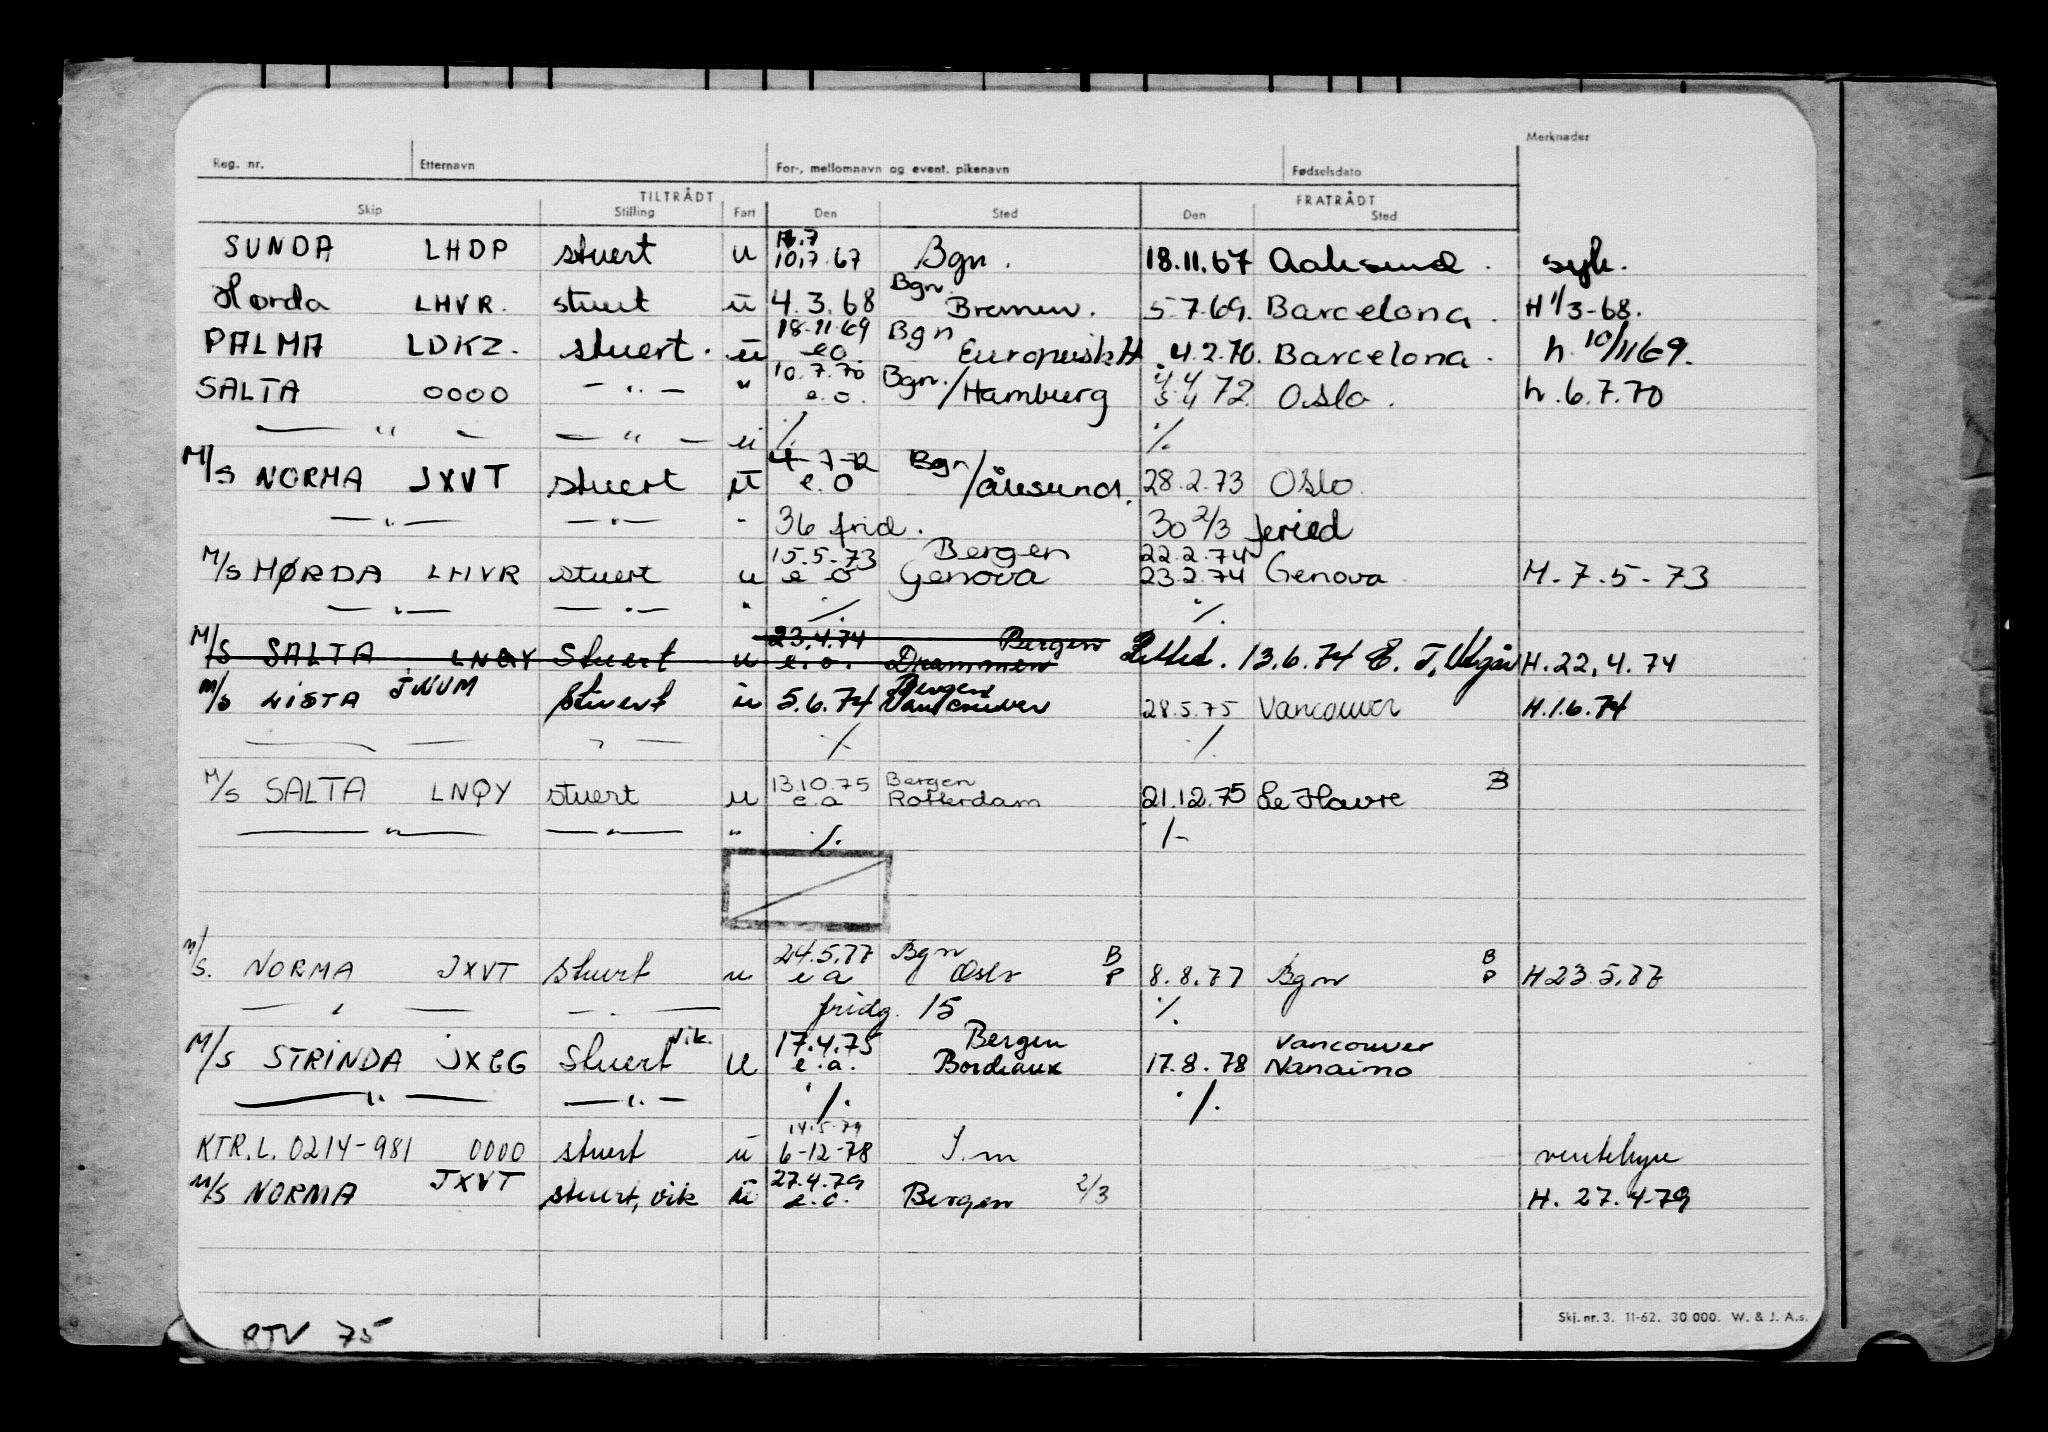 Merknader
Reg. nr. Etternavn For-, mellomnavn og event. pikenavn Fødselsdato
TILTRÅDT FRATRÅDT
Skip Stilling Fart Den Sted Den Sted
SUNDA LHDP stuert u 10.7.67 Bgn. 18.11.67 Aalesund. syk.
Horda LHVR. stuert u 4.3.68 Bgn. Bremen. 5.7.69. Barcelona. H 1/3-68.
PALMA LDKZ. stuert. u 18.11.69 Bgn
e.o. 4.2.70. Barcelona. h. 10/11 69.
SALTA 0000 - " - " 10.7.70 Bgn./Hamburg
e.o. 5.4 72. Oslo. h. 6.7.70
— " — — " — u ./. ./.
M/S NORMA JXVT stuert u 4-7-72 Bgn/Ålesund.
e.o 28.2.73 Oslo.
— " — — " — " 36 frid. 30 2/3 feried
M/S HØRDA LHVR stuert u 15.5.73 Bergen 22.2.74
e o Genova 23.2.74 Genova. H. 7.5-73
— " — — " — " ./. ./.
M/S SALTA LNQY Stuert u 23.4.74 Bergen
e.o. Drammen 13.6.74 E. T. H. 22.4.74
M/S LISTA JNUM stuert u 5.6.74 Bergen
Vancouver 28.5.75 Vancouver H.1.6.74
— — " — ./. ./.
M/S SALTA LNQY stuert u 13.10.75 Bergen
e.a Rotterdam 21.12.75 Le Havre B
— " — — " — " ./. ./.
M/S. NORMA JXVT stuert u 24.5.77 Bgn B B
e a Oslo P 8.8.77 Bgn P H 23.5.77
— " — — " — fridg. 15 ./.
M/S STRINDA JXGG Stuert vik. u 17.4.75 Bergen Vancouver
e.a. Bordeaux 17.8.78 Nanaimo
— " — — " — ./. ./.
14.5.79
KTR.L. 0214-981 0000 stuert u 6-12-78 I.m ventehyre
M/S NORMA JXVT stuert, vik u 27.4.79
e.o. Bergen 2/3 H. 27.4-79
Skj. nr. 3. 11-62. 30 000. W. & J. A.s.
RTV 75